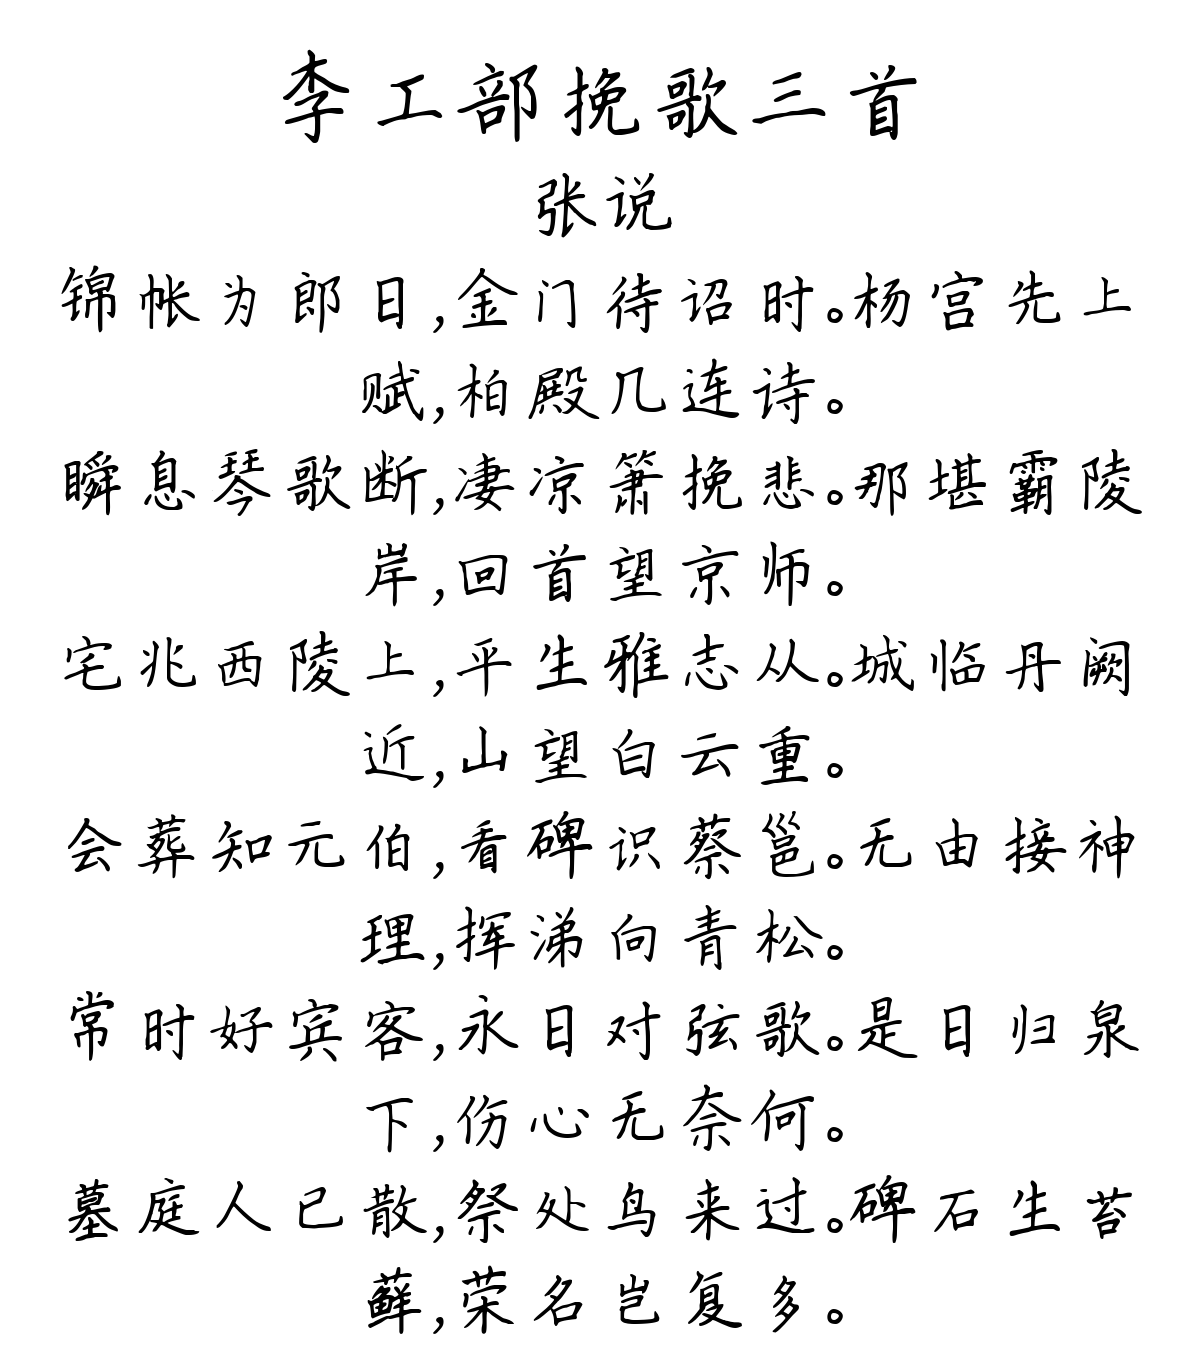 李工部挽歌三首
张说
锦帐为郎日,金门待诏时。杨宫先上
赋,柏殿几连诗。
瞬息琴歌断,凄凉箫挽悲。那堪霸陵
岸,回首望京师。
宅兆西陵上,平生雅志从。城临丹阙
近,山望白云重。
会葬知元伯,看碑识蔡邕。无由接神
理,挥涕向青松。
常时好宾客,永日对弦歌。是日归泉
下,伤心无奈何。
墓庭人已散,祭处鸟来过。碑石生苔
藓,荣名岂复多。